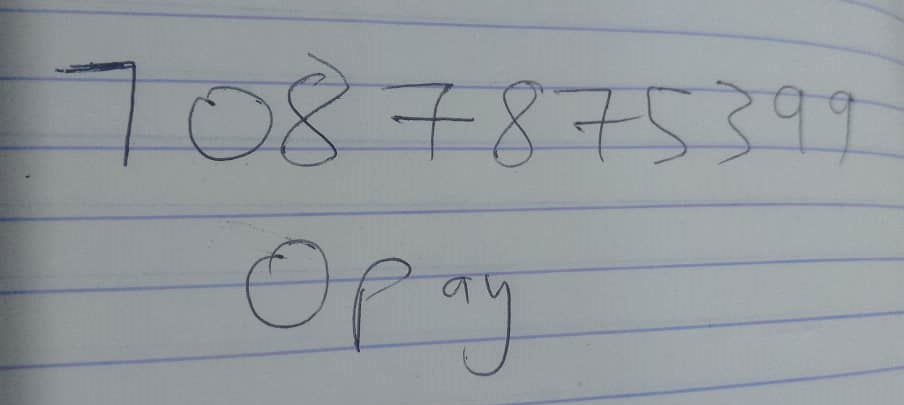 7087875399
Opay